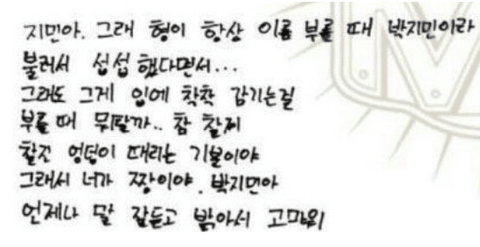 지민아. 그래 형이 항상 이름 부를 때 박지민이라
불러서 섭섭 했다면서...
그래도 그게 입에 착착 감기는걸
부를때 뭐랄까.. 참 찰찌
찰진 엉덩이 때리는 기분이야
그래서 너가 짱이야. 박지민아
언제나 말 잘듣고 밝아서 고마워